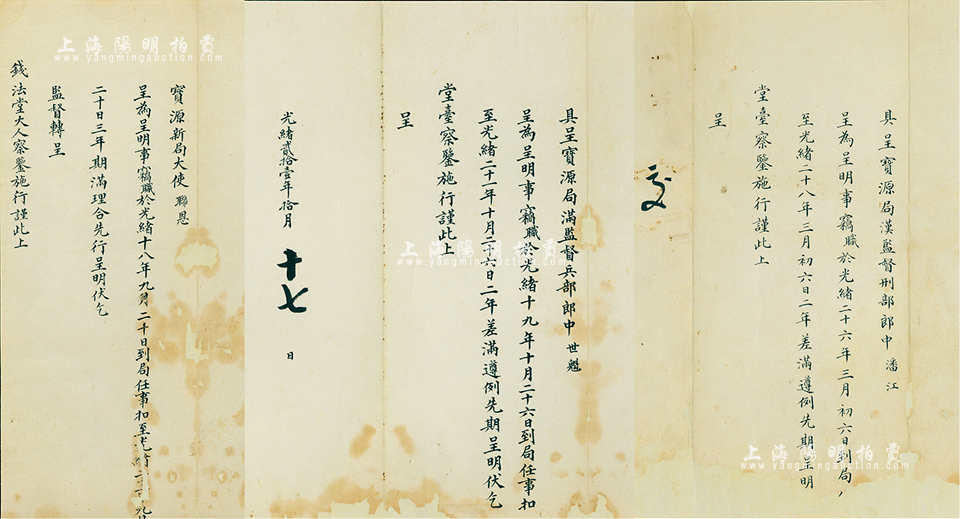 具呈寶源局漢監督刑部郎中 潘江
呈為呈明事竊職於光緒二十六年三月初六日到局
至光緒二十八年三月初六日二年差滿遵例先期呈明
堂臺察鑒施行謹此上
呈
具呈寶源局滿監督兵部郎中 世魁
呈為呈明事竊職於光緒十九年十月二十六日到局任事扣
至光緒二十一年十月二十六日二年差滿遵例先期呈明伏乞
堂臺察鑒施行謹此上
呈
光緒貳拾壹年拾月 十七 日
寶源新局大使 聯恩
呈為呈明事竊職於光緒十八年九月二十日到局任事扣至光緒二十一年九月
二十日三年期滿理合先行呈明伏乞
監督轉呈
錢法堂大人察鑒施行謹此上
上海陽明拍賣
www.yangmingauction.com
上海陽明拍賣
www.yangmingauction.com
上海陽明拍賣
www.yangmingauction.com